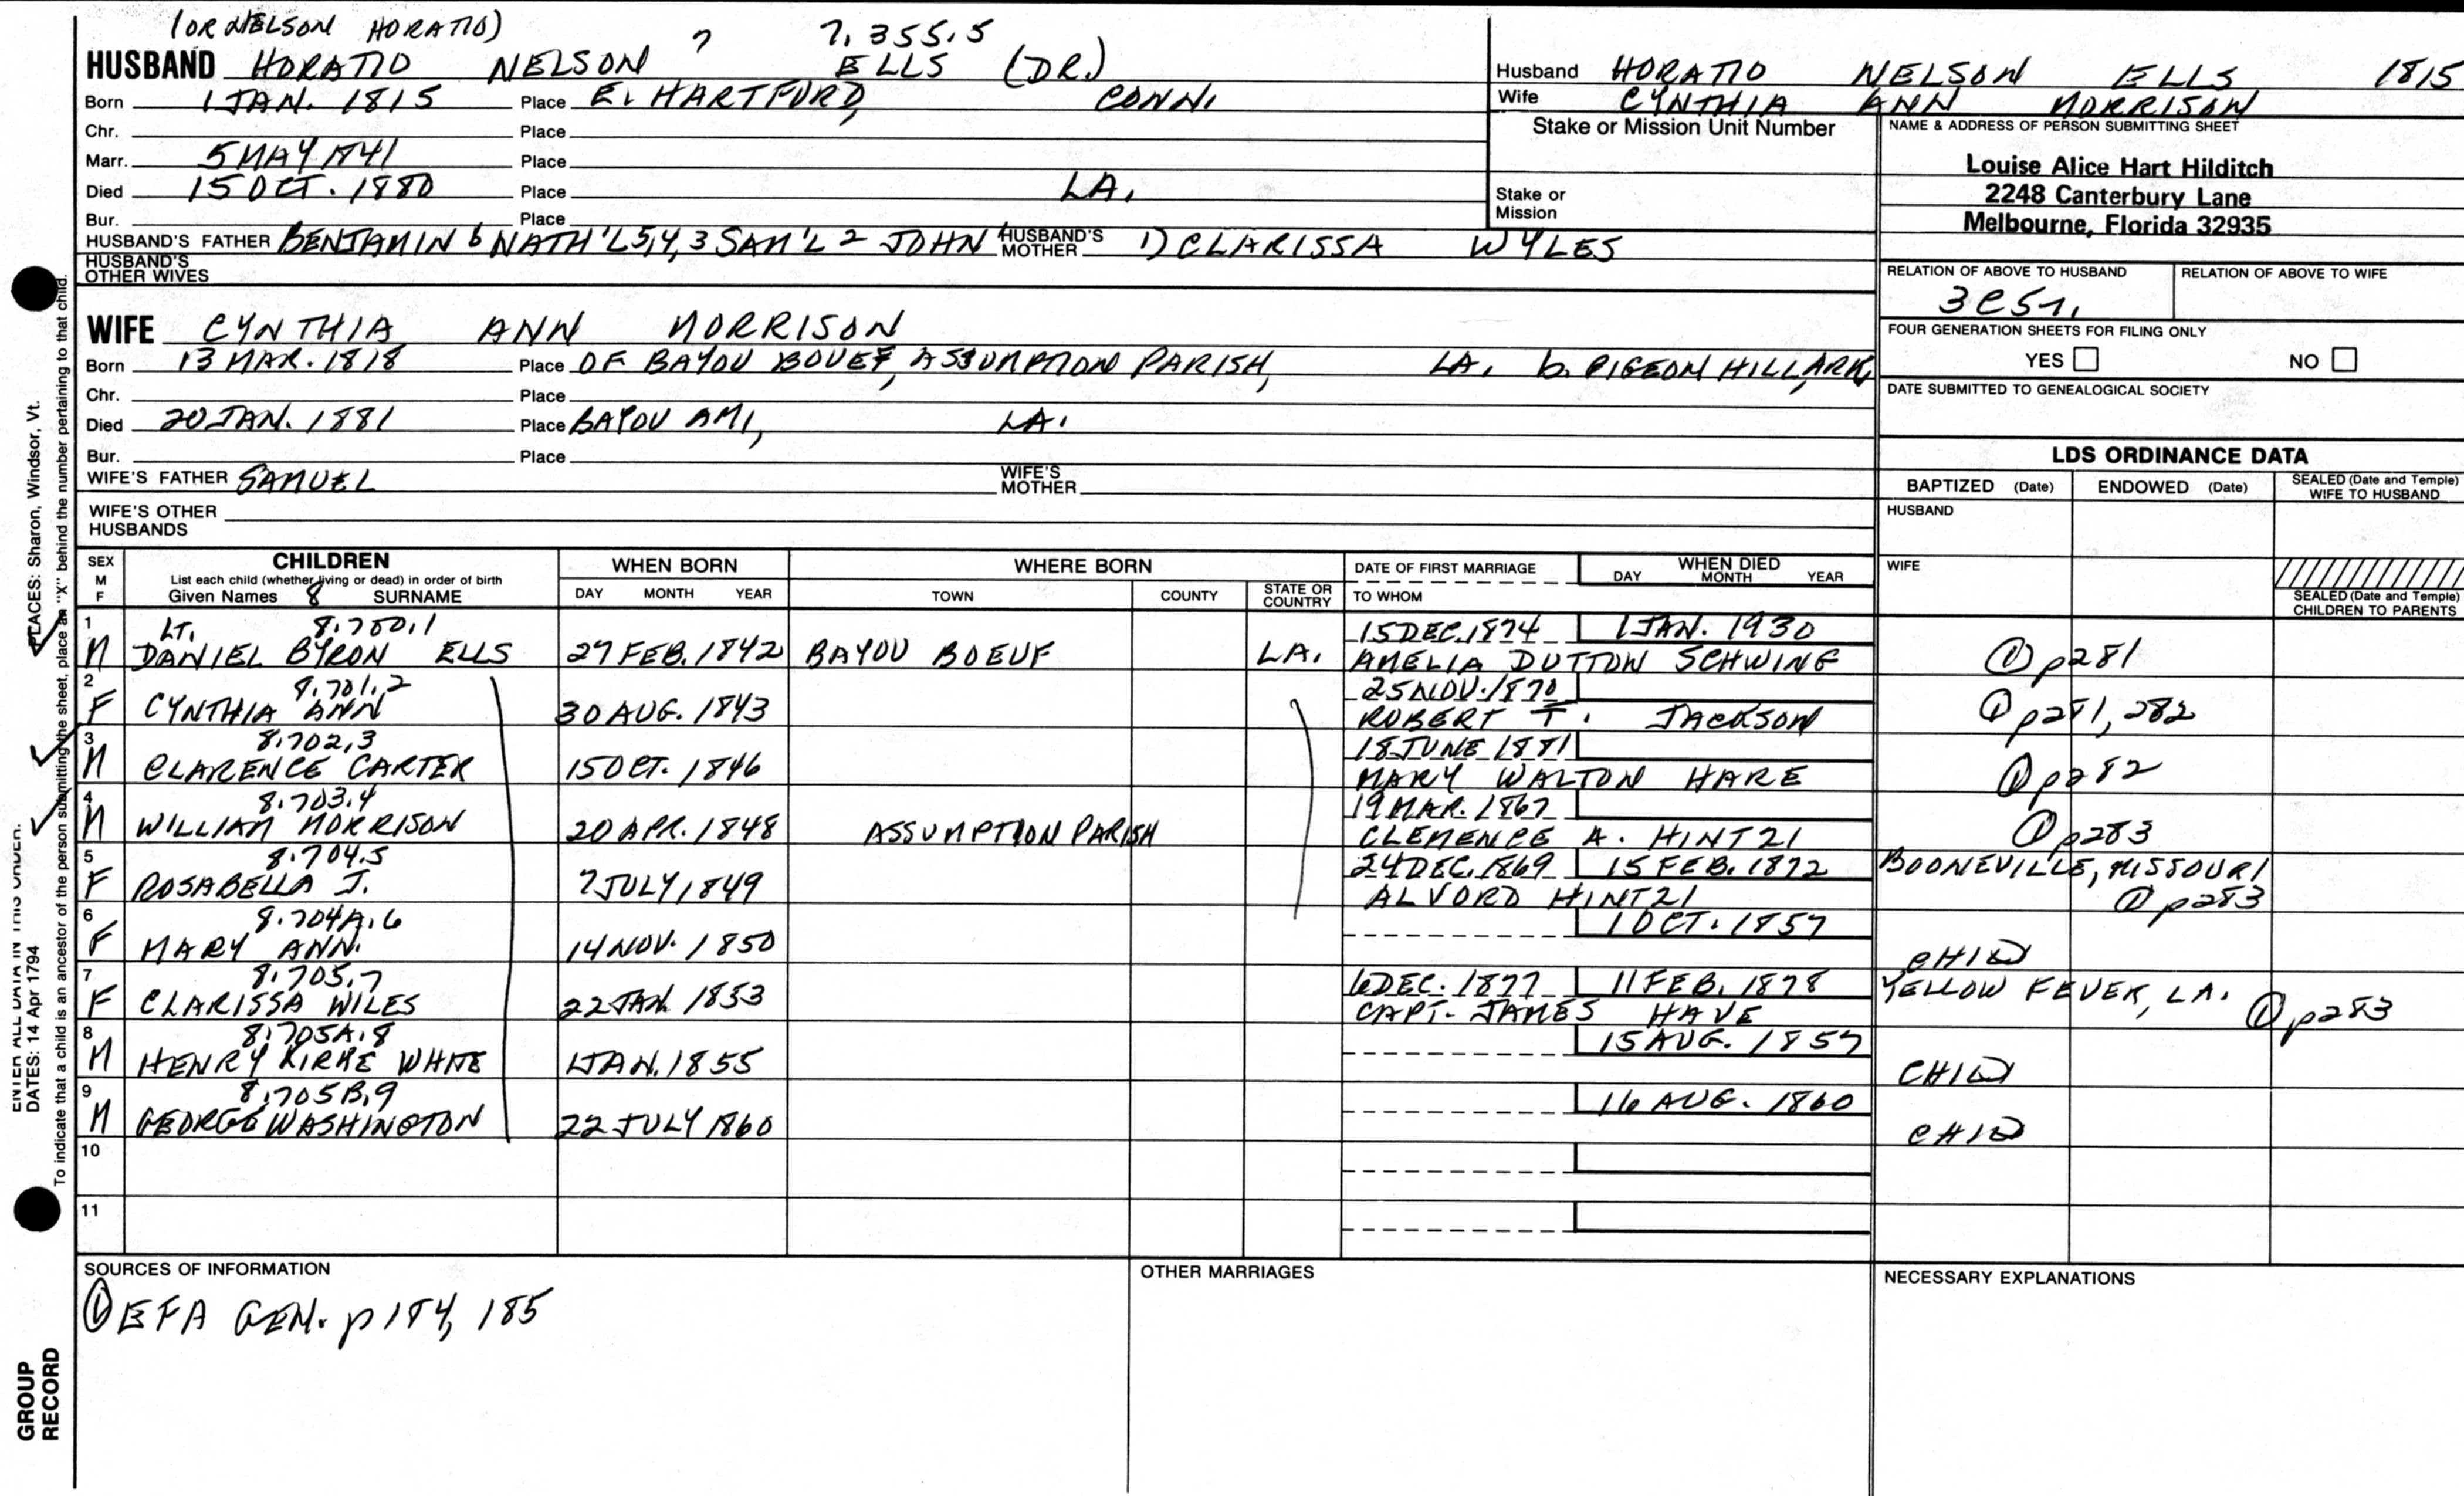 (OR NELSON HORATIO)
7.355.5
HUSBAND HORATIO NELSON ? ELLS (DR.)
Born 1 JAN. 1815 Place E. HARTFORD, CONN.
Chr. Place
Marr. 5 MAY 1841 Place
Died 15 OCT. 1880 Place LA.
Bur. Place
HUSBAND'S FATHER BENJAMIN 6 NATH'L 5,4,3 SAM'L 2 JOHN HUSBAND'S MOTHER 1) CLARISSA WYLES
HUSBAND'S OTHER WIVES
WIFE CYNTHIA ANN MORRISON
Born 13 MAR. 1818 Place OF BAYOU BOUEF, ASSUMPTION PARISH, LA. b. PIGEON HILL, ARK.
Chr. Place
Died 20 JAN. 1881 Place BAYOU AMI, LA.
Bur. Place
WIFE'S FATHER SAMUEL WIFE'S MOTHER
WIFE'S OTHER HUSBANDS
Husband HORATIO NELSON ELLS 1815
Wife CYNTHIA ANN MORRISON
Stake or Mission Unit Number
Stake or Mission
NAME & ADDRESS OF PERSON SUBMITTING SHEET
Louise Alice Hart Hilditch
2248 Canterbury Lane
Melbourne, Florida 32935
RELATION OF ABOVE TO HUSBAND RELATION OF ABOVE TO WIFE
FOUR GENERATION SHEETS FOR FILING ONLY
YES NO
DATE SUBMITTED TO GENEALOGICAL SOCIETY
LDS ORDINANCE DATA
BAPTIZED (Date) ENDOWED (Date) SEALED (Date and Temple) WIFE TO HUSBAND
HUSBAND
WIFE
SEALED (Date and Temple) CHILDREN TO PARENTS
SEX M F
CHILDREN
List each child (whether living or dead) in order of birth
Given Names 8 SURNAME
WHEN BORN
DAY MONTH YEAR
WHERE BORN
TOWN COUNTY STATE OR COUNTRY
DATE OF FIRST MARRIAGE
TO WHOM
WHEN DIED
DAY MONTH YEAR
1 LT. 8.700.1 15 DEC. 1874 1 JAN. 1930
M DANIEL BYRON ELLS 27 FEB. 1842 BAYOU BOEUF LA. AMELIA DUTTON SCHWING ① p281
2 8.701.2 25 NOV. 1870
F CYNTHIA ANN 30 AUG. 1843 ROBERT T. JACKSON ① p281, 282
3 8.702.3 18 JUNE 1881
M CLARENCE CARTER 15 OCT. 1846 MARY WALTON HARE ① p282
4 8.703.4 19 MAR. 1867
M WILLIAM MORRISON 20 APR. 1848 ASSUMPTION PARISH CLEMENCE A. HINTZI ① p283
5 8.704.5 24 DEC. 1869 15 FEB. 1872 BOONEVILLE, MISSOURI
F ROSABELLA J. 7 JULY 1849 ALVORD HINTZI ① p283
6 8.704A.6 1 OCT. 1857
F MARY ANN. 14 NOV. 1850 CHILD
7 8.705.7 6 DEC. 1877 11 FEB. 1878 YELLOW FEVER, LA.
F CLARISSA WILES 22 JAN. 1853 CAPT. JAMES HAVE ① p283
8 8.705A.8 15 AUG. 1857
M HENRY KIRKE WHITE 1 JAN. 1855 CHILD
9 8.705B.9 16 AUG. 1860
M GEORGE WASHINGTON 22 JULY 1860 CHILD
10
11
SOURCES OF INFORMATION
① EFA GEN. p184, 185
OTHER MARRIAGES
NECESSARY EXPLANATIONS
PLACES: Sharon, Windsor, Vt.
ENTER ALL DATA IN THIS ORDER:
DATES: 14 Apr 1794
To indicate that a child is an ancestor of the person submitting the sheet, place an "X" behind the number pertaining to that child.
GROUP RECORD